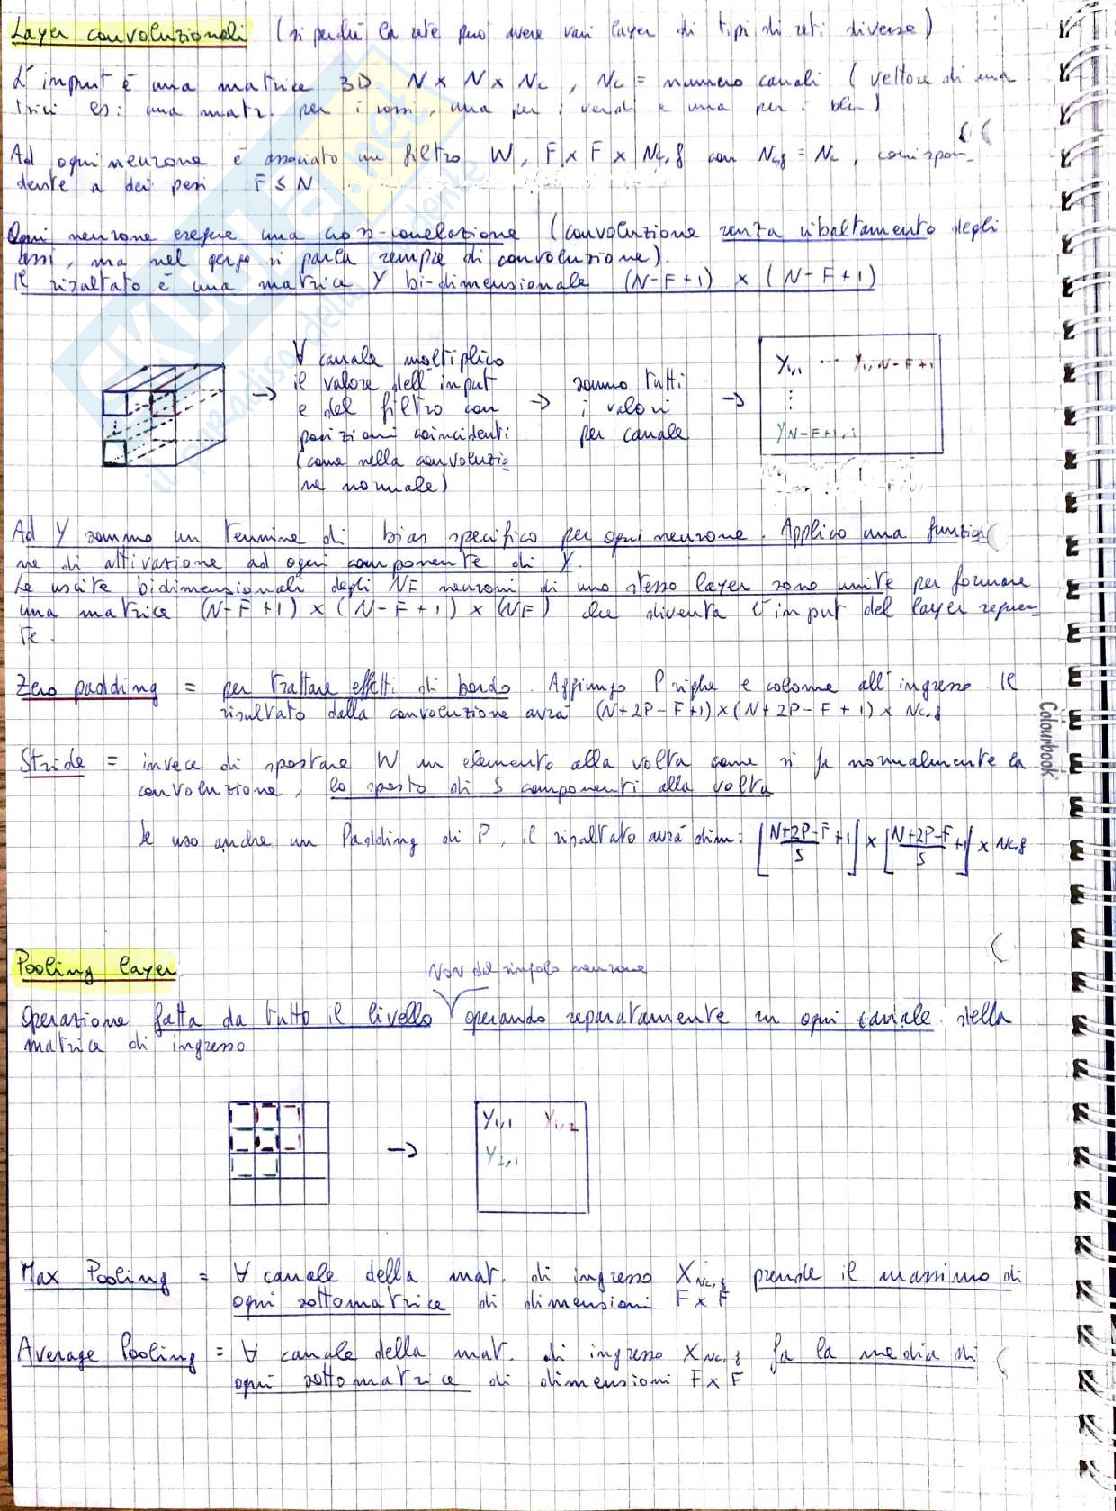 Layer convoluzionali (si perché la rete può avere vari layer di tipi di reti diverse)
L'input è una matrice 3D N x N x Nc , Nc = numero canali ( vettore di ma
trici es: una matr. per i rossi, una per i verdi e una per i blu)
Ad ogni neurone è associato un filtro W, F x F x Nc,f con Nc,f = Nc , corrispon-
dente a dei pesi F ≤ N
Ogni neurone esegue una cross-correlazione (convoluzione senza ribaltamento degli
assi, ma nel gergo si parla sempre di convoluzione).
Il risultato è una matrice Y bi-dimensionale (N-F+1) x (N-F+1)
∀ canale moltiplico
il valore dell'input
e del filtro con
posizioni coincidenti
(come nella convoluzio
ne normale)
sommo tutti
i valori
per canale
Y1,1 ... Y1,N-F+1
YN-F+1,1
Ad Y sommo un termine di bias specifico per ogni neurone. Applico una funzio
ne di attivazione ad ogni componente di Y.
Le uscite bidimensionali degli NF neuroni di uno stesso layer sono unite per formare
una matrice (N-F+1) x (N-F+1) x (NF) che diventa l'input del layer seguen-
te.
Zero padding = per trattare effetti di bordo Aggiungo P righe e colonne all'ingresso Il
risultato dalla convoluzione avrà (N+2P-F+1) x (N+2P-F+1) x Nc,f
Stride = invece di spostare W un elemento alla volta come si fa normalmente la
convoluzione, lo sposto di S componenti alla volta
Se uso anche un Padding di P, il risultato avrà dim: ⌊(N+2P-F)/S +1⌋ x ⌊(N+2P-F)/S +1⌋ x Nc,f
Colourbook
Pooling layer
NON del singolo neurone
Operazione fatta da tutto il livello operando separatamente in ogni canale della
matrice di ingresso
Y1,1 Y1,2
Y2,1
Max Pooling = ∀ canale della mat. di ingresso XNc,f prende il massimo di
ogni sottomatrice di dimensioni F x F
Average Pooling = ∀ canale della mat. di ingresso XNc,f fa la media di
ogni sottomatrice di dimensioni F x F